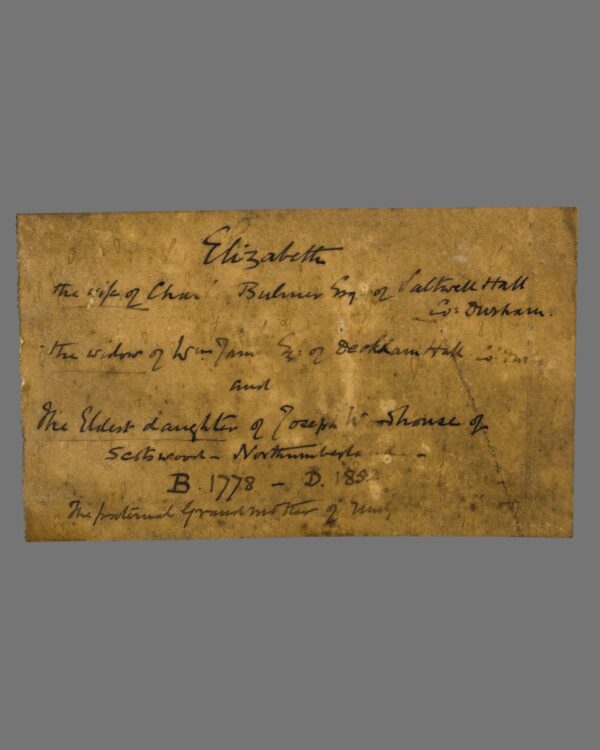 Elizabeth
the wife of Chas Bulmer Esq of Saltwell Hall
Co: Durham.
the widow of Wm Esq: of Deckham Hall Co
and
The Eldest daughter of Joseph of
Scotswood – Northumberland –
B. 1778 – D.
The paternal Grandmother of